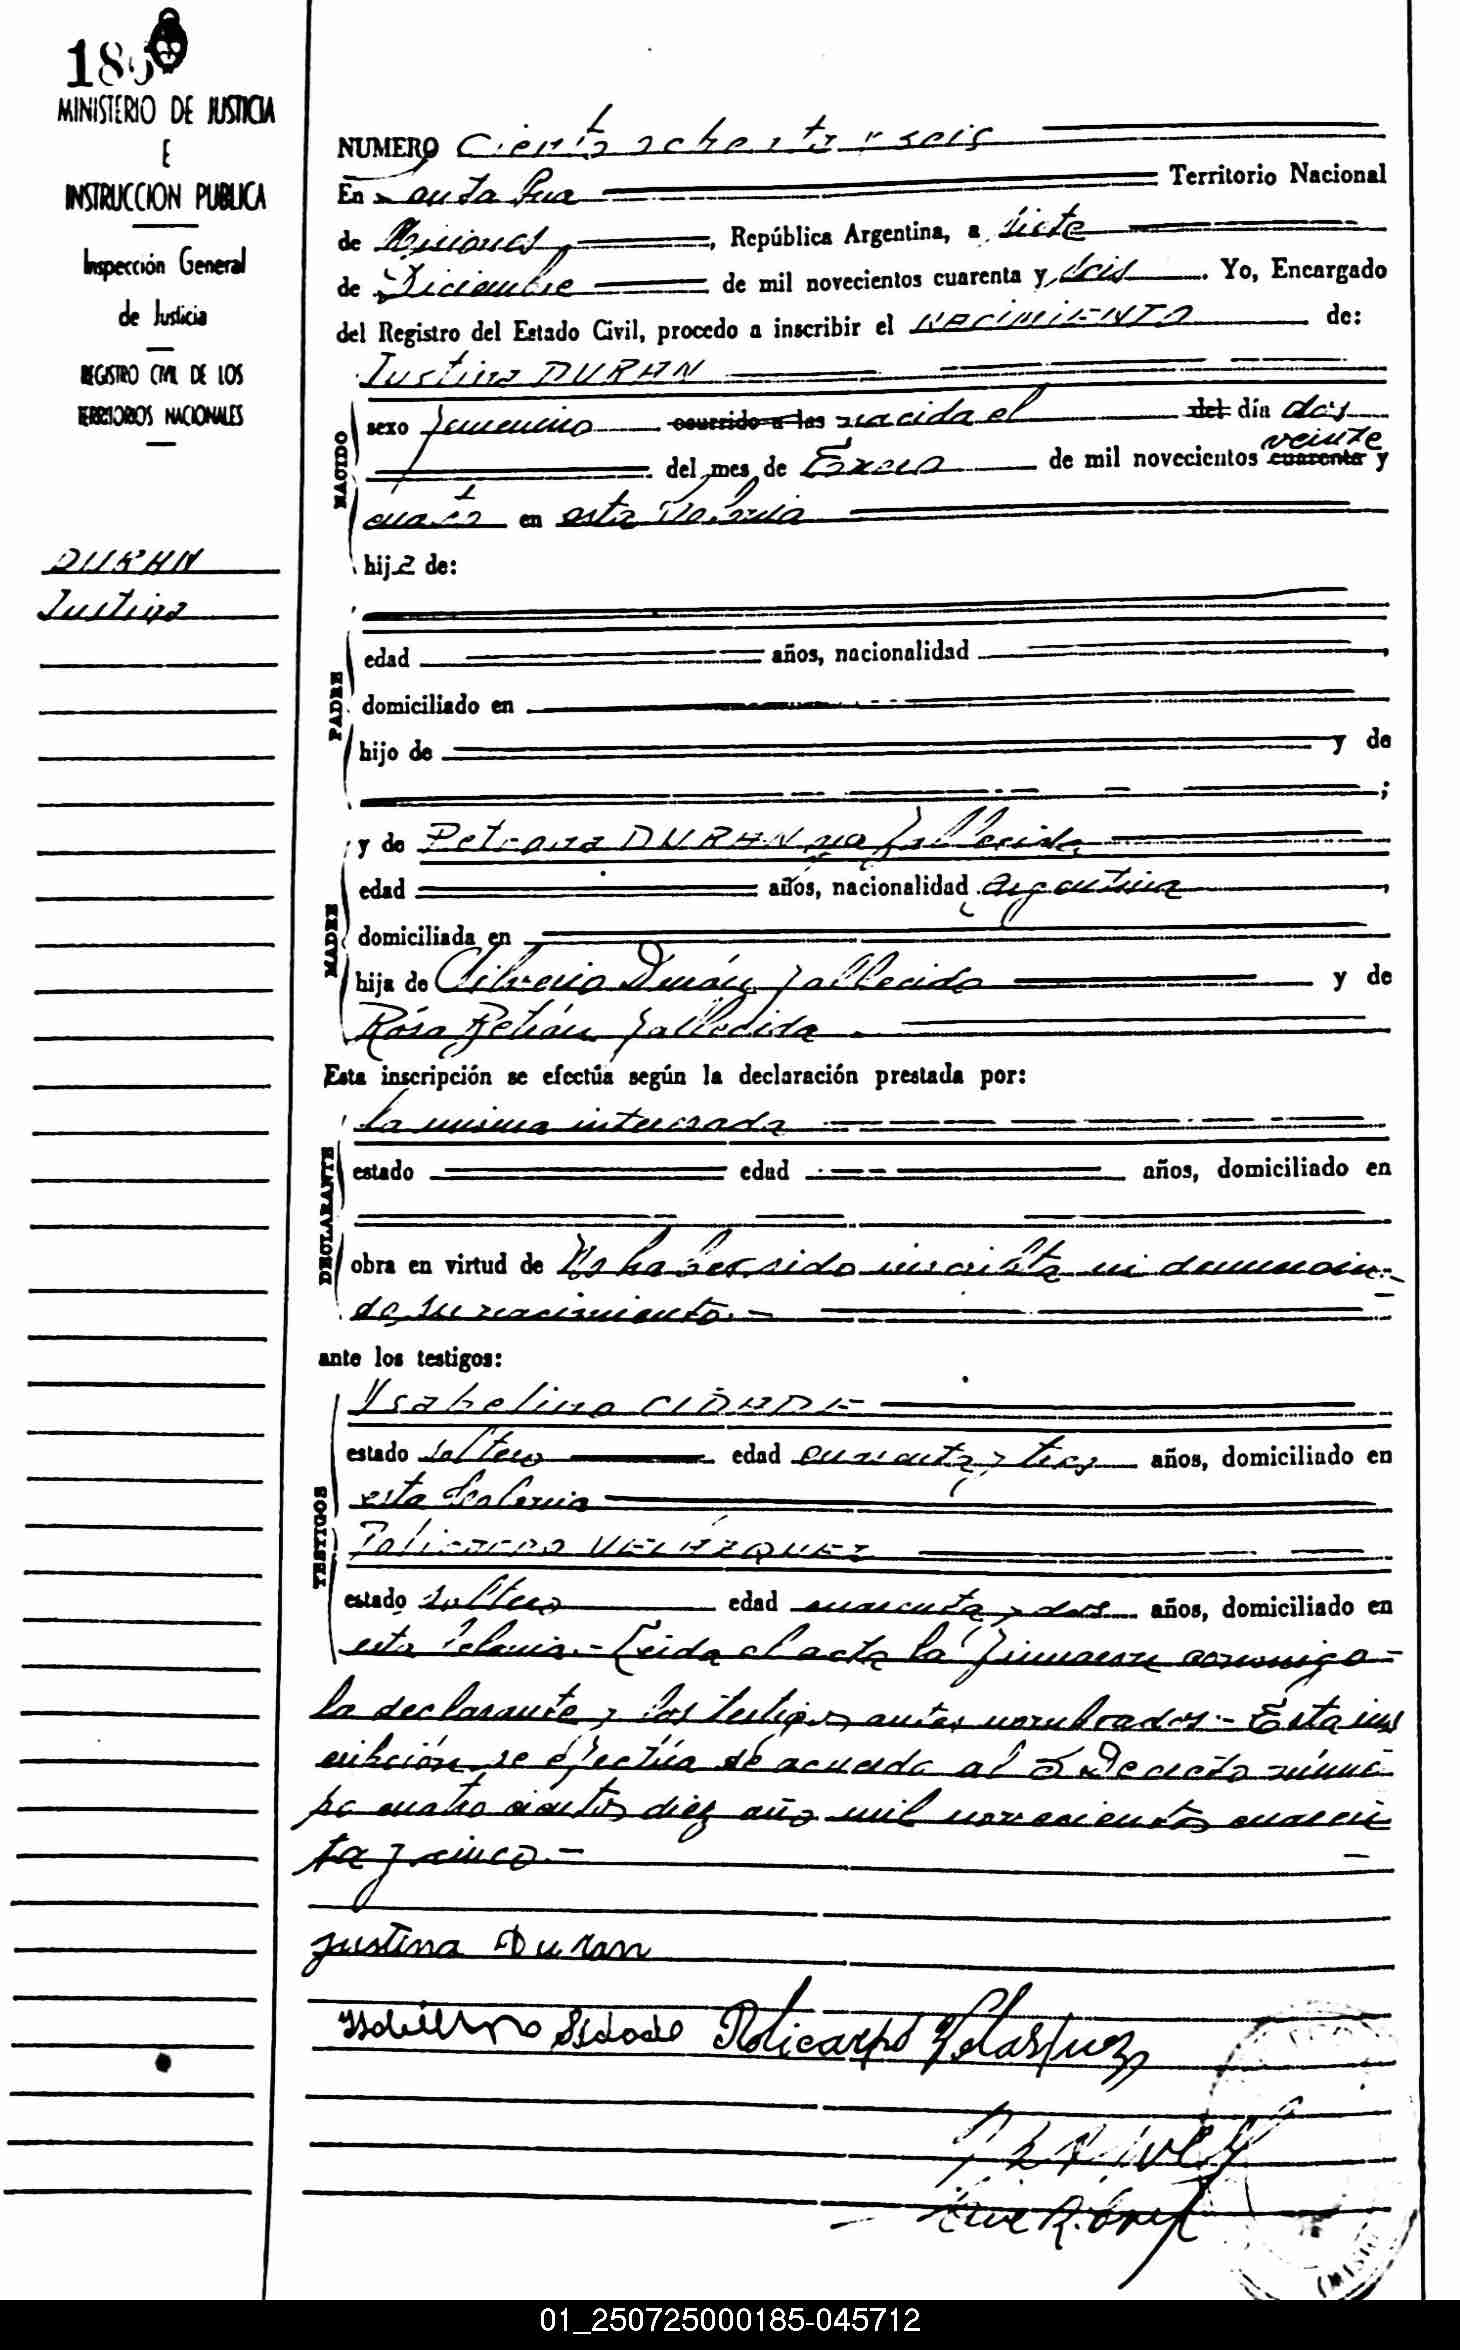 186
MINISTERIO DE JUSTICIA
E
INSTRUCCION PUBLICA
Inspección General
de Justicia
REGISTRO CIVIL DE LOS
TERRITORIOS NACIONALES
DURAN
Justina
NUMERO Ciento ochenta y seis
En Santa Ana Territorio Nacional
de Misiones, República Argentina, a siete
de Diciembre de mil novecientos cuarenta y seis. Yo, Encargado
del Registro del Estado Civil, procedo a inscribir el NACIMIENTO de:
Justina DURAN
NACIDO
sexo femenino ocurrido a las nacida el del día dos
del mes de Enero de mil novecientos cuarenta veinte y
cuatro en esta Colonia
hija de:
PADRE
edad años, nacionalidad
domiciliado en
hijo de y de
;
MADRE
y de Petrona DURAN ya fallecida
edad años, nacionalidad Argentina,
domiciliada en
hija de Silverio Durán, fallecido y de
Rosa fallecida
Esta inscripción se efectúa según la declaración prestada por:
DECLARANTE
la misma interesada
estado edad años, domiciliado en
obra en virtud de No haber sido inscripta ni denuncia
do su nacimiento.-
ante los testigos:
TESTIGOS
Ysabelino CIDADE
estado soltero edad cuarenta y tres años, domiciliado en
esta Colonia
Policarpo VELAZQUEZ
estado soltero edad cuarenta y dos años, domiciliado en
esta Colonia.- Leida el acta la firmaron conmigo
la declarante y los testigos antes nombrados.- Esta ins
cripción se efectúa de acuerdo al Decreto núme
ro cuatro cientos diez año mil novecientos cuaren
ta y cinco.-
Justina Duran
Policarpo Velasquez
01_250725000185-045712